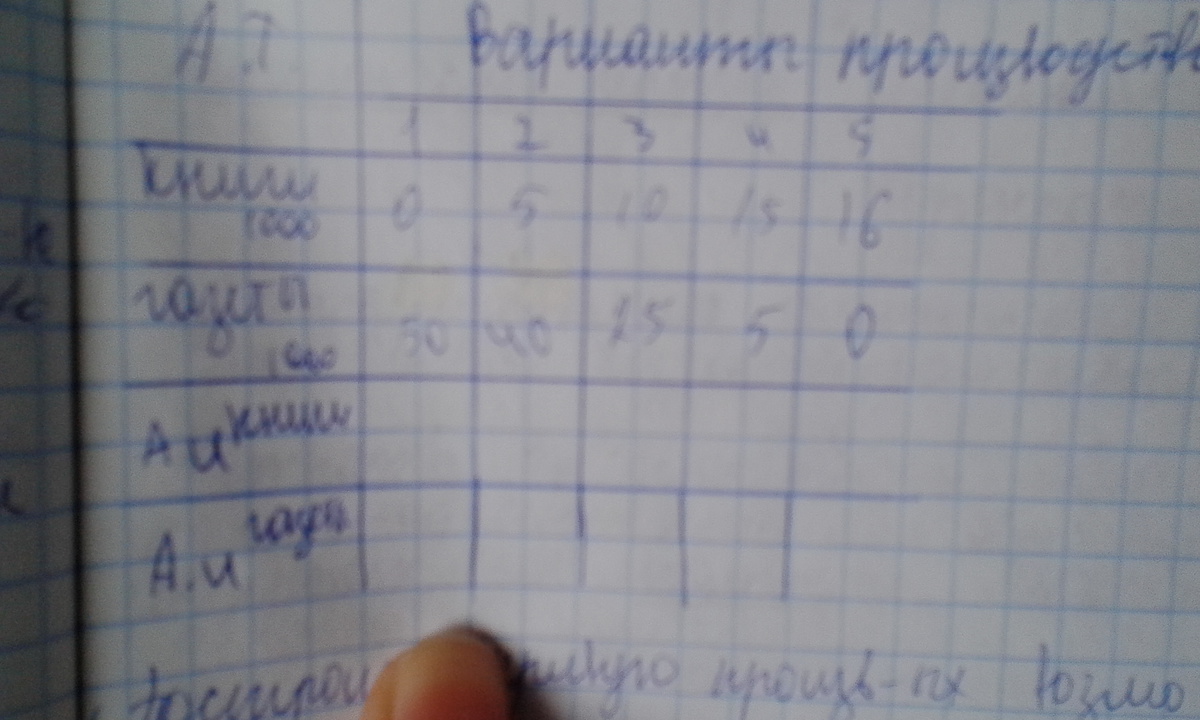 А.Т Варианты производств
1 2 3 4 5
книги 1000 0 5 10 15 16
газеты 1000 50 40 25 5 0
А и книги
А.и газеты
произв-ых возмо